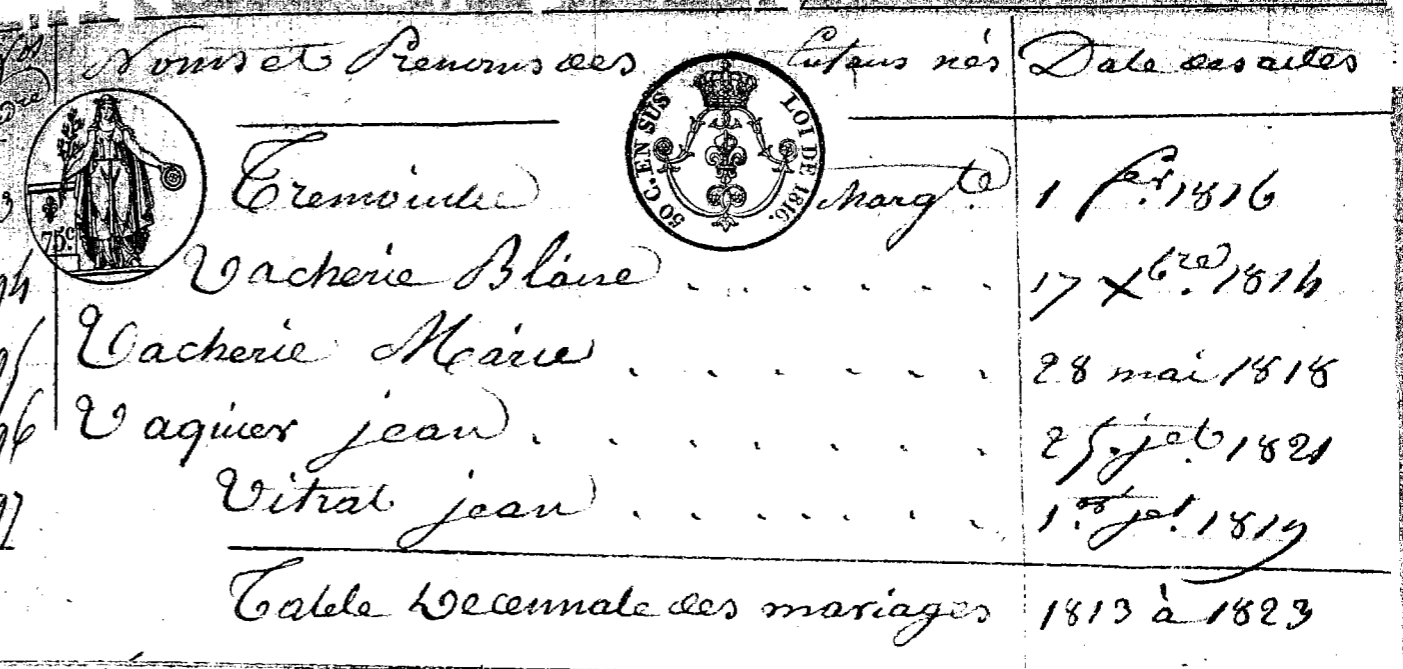 Noms et Prenoms des Enfans nés Date des actes
50 C. EN SUS LOI DE 1816.
75 c.
Margte 1 fer. 1816
94 Vacherie Blaise . . . . . . 17 Xbre. 1814
95 Vacherie Marie . . . . . . 28 mai 1818
96 Vaquier jean . . . . . . . 25 jet. 1821
97 Vitrat jean . . . . . . 1er jet. 1819
Table Decennale des mariages 1813 à 1823